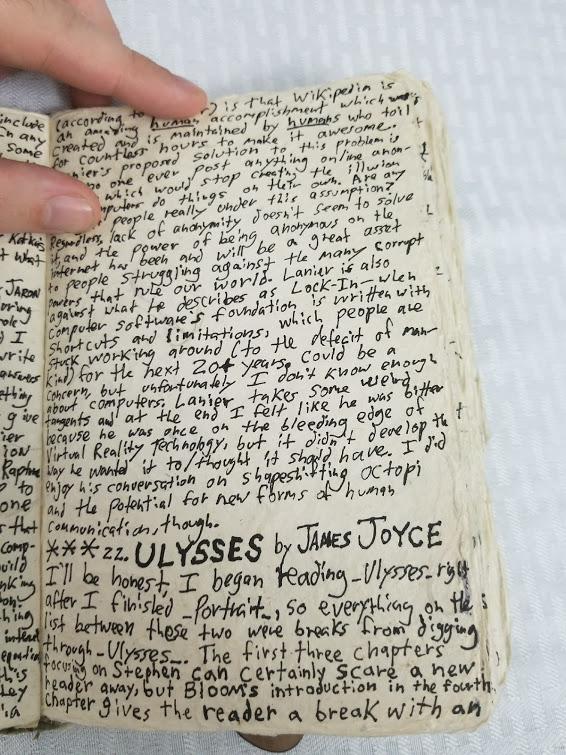 include
in any
some
Kotkin
t what
JARON
uring
ole)
d I
write
answers
ething
g give
ier
ION
Raphae
P to
one
s that
Comp-
build
nking
on.
thing
intend
this
ley
(according to human) is that Wikipedia is
an amazing human accomplishment which was
created and is maintained by humans who toil
for countless hours to make it awesome.
Lanier's proposed solution to this problem is
no one ever post anything online anon-
which would stop creating the illusion
computers do things on their own. Are any
people really under this assumption?
Regardless, lack of anonymity doesn't seem to solve
it, and the power of being anonymous on the
internet has been and will be a great asset
to people struggling against the many corrupt
powers that rule our world. Lanier is also
against what he describes as Lock-In—when
computer software's foundation is written with
shortcuts and limitations, which people are
stuck working around (to the defecit of man-
kind) for the next 20+ years. Could be a
concern, but unfortunately I don't know enough
about computers. Lanier takes some weird
tangents and at the end I felt like he was bitter
because he was once on the bleeding edge of
Virtual Reality Technology, but it didn't develop the
way he wanted it to/thought it should have. I did
enjoy his conversation on shapeshifting octopi
and the potential for new forms of human
communication, though.
*** 22. ULYSSES by JAMES JOYCE
I'll be honest, I began reading _Ulysses_ right
after I finished _Portrait_, so everything on the
list between these two were breaks from digging
through _Ulysses_. The first three chapters
focusing on Stephen can certainly scare a new
reader away, but Bloom's introduction in the fourth
chapter gives the reader a break with an